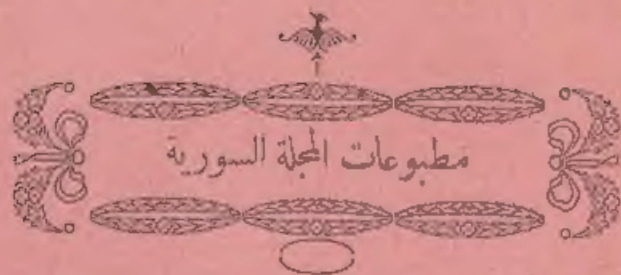 مطبوعات المجلة السورية